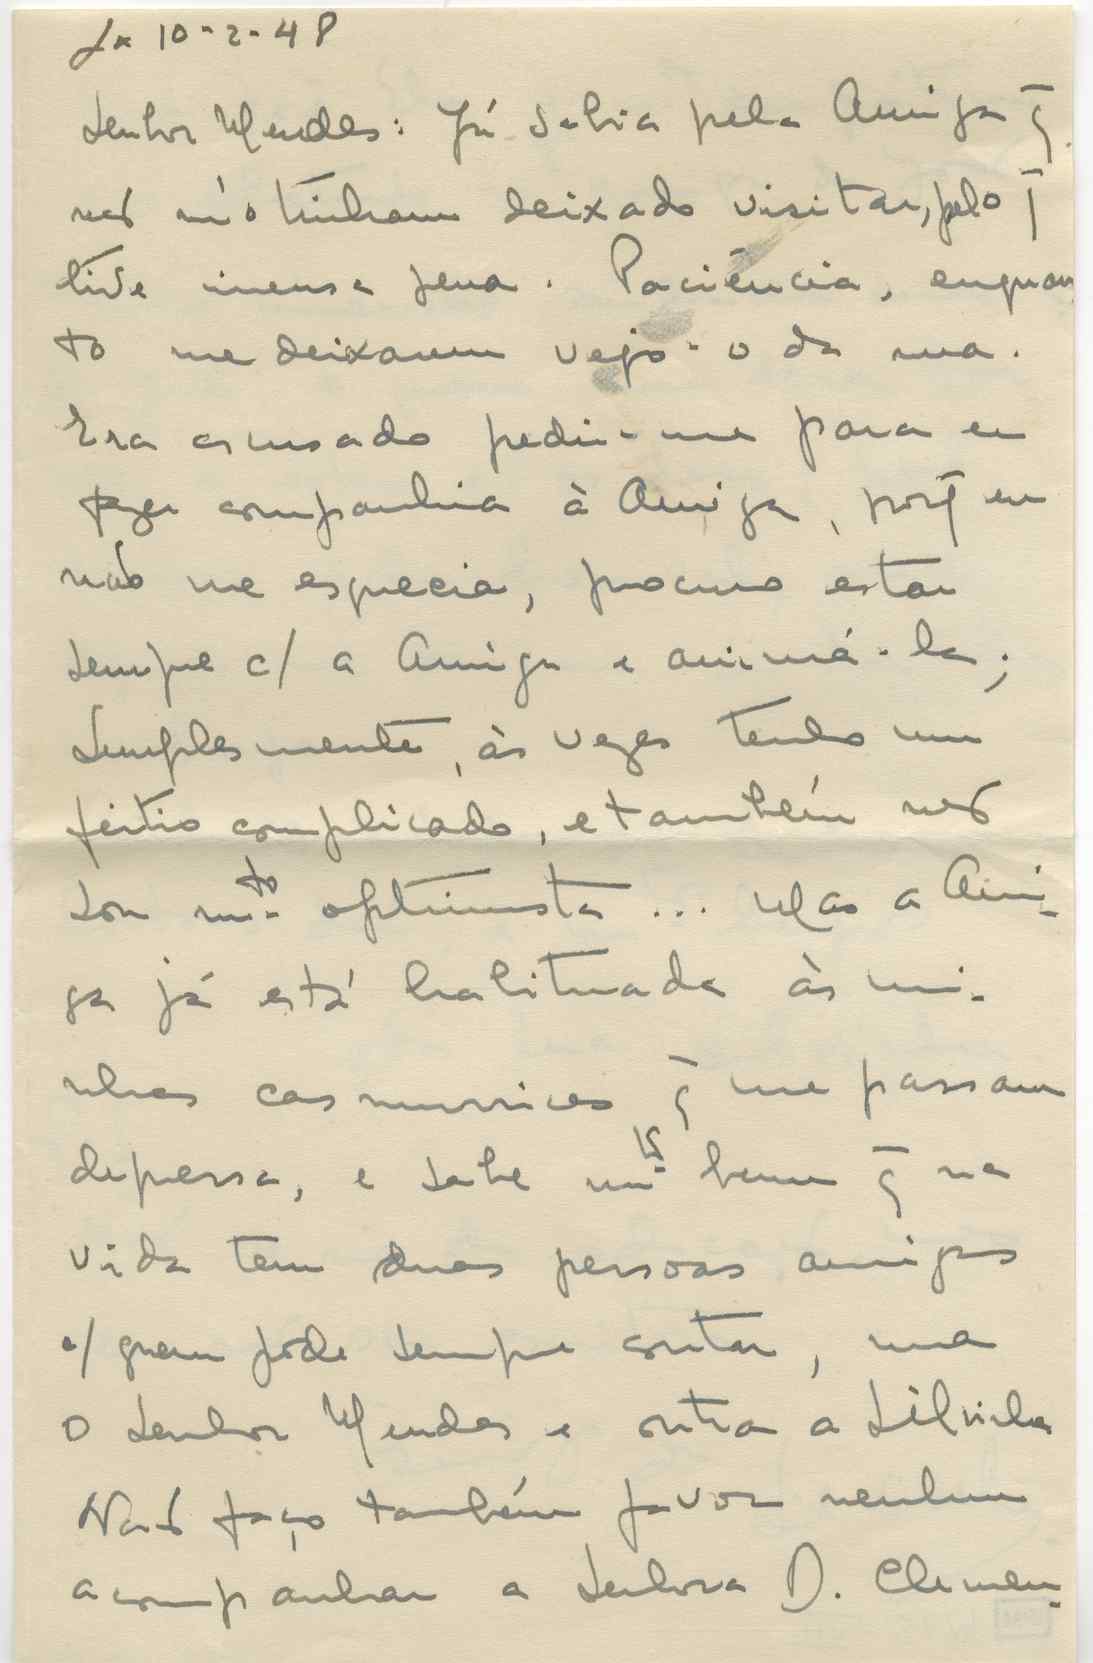 Lx 10-2-48
Senhor Mendes: Já sabia pela Amiga q̄
não m'o tinham deixado visitar, pelo q̄
tive imensa pena. Paciência, enquan
to me deixarem vejo-o da rua.
Era escusado pedir-me para eu
fazer companhia à Amiga, porq̄ eu
não me esquecia, procuro estar
sempre c/ a Amiga e animá-la;
Simplesmente, às vezes tenho um
feitio complicado, e também não
sou mto. optimista... Mas a Ami-
ga já está habituada às mi-
nhas casmurrices q̄ me passam
depressa, e sabe mto. bem q̄ na
vida tem duas pessoas amigas
c/ quem pode sempre contar, uma
o Senhor Mendes e outra a Silvinha
Não faço também favor nenhum
acompanhar a Senhora D. Clemen-